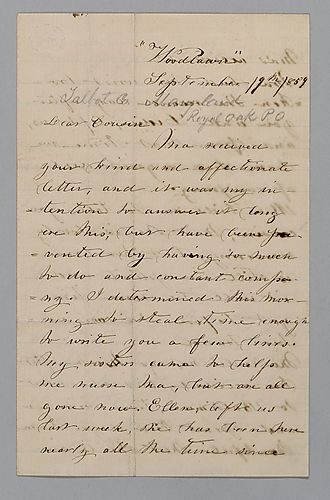 "Woodlawn"
September 19th/1859
Talbot Co Maryland
Royal Oak P.O.
Dear Cousin
Ma received
your kind and affectionate
letter, and it was my in-
=tention to answer it long
ere this; but have been pre-
=vented by having so much
to do and constant compa-
=ny. I determined this mor-
=ning to steal time enough
to write you a few lines.
My sisters came to help
me nurse Ma, but are all
gone now. Ellen left us
last week, she has been here
nearly all the time since